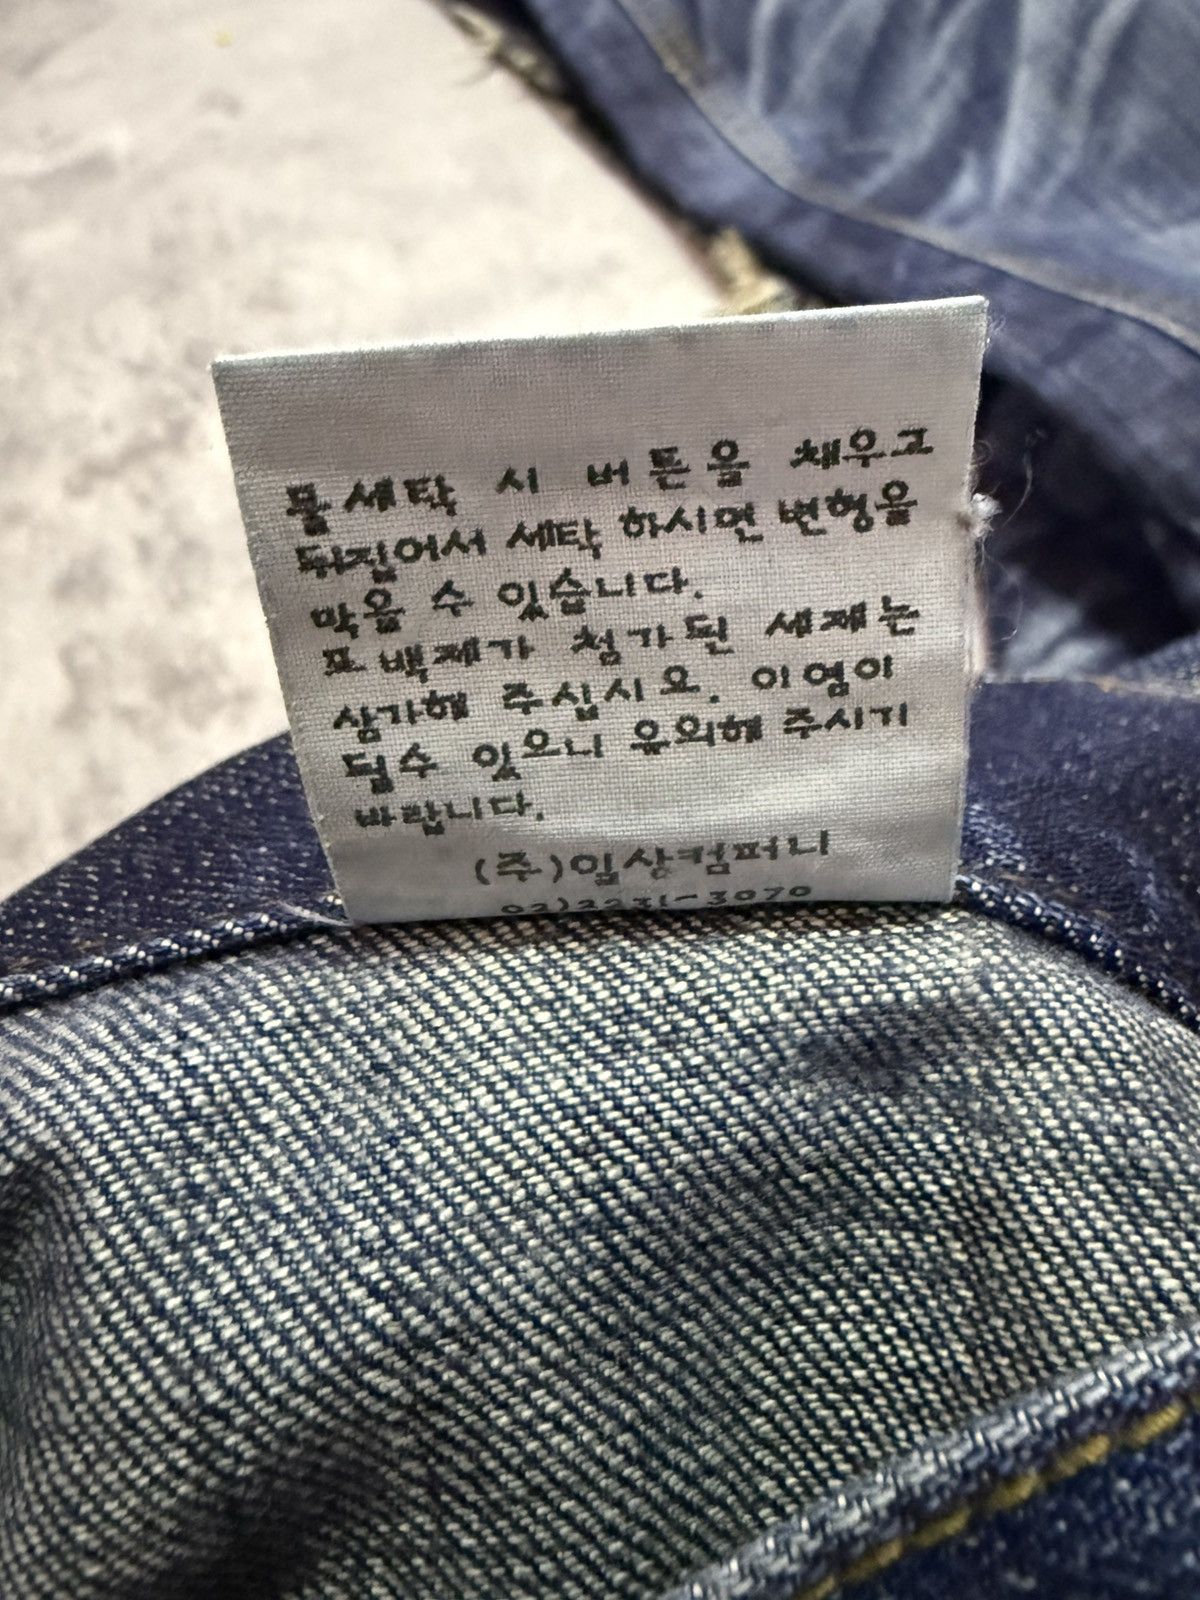 물세탁 시 버튼을 채우고
뒤집어서 세탁 하시면 변형을
막을 수 있습니다.
표백제가 첨가된 세제는
삼가해 주십시요. 이염이
될수 있으니 유의해 주시기
바랍니다.
(주)일상컴퍼니
02)2231-3070